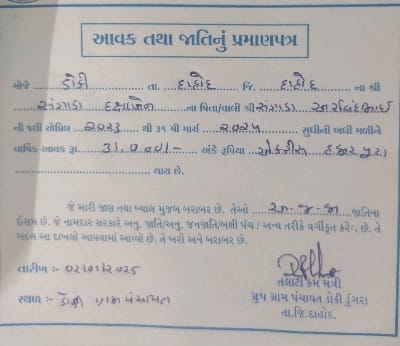 આવક તથા જાતિનું પ્રમાણપત્ર
મોજે ડોકી તા. દાહોદ જિ. દાહોદ ના શ્રી
સંગાડા દક્ષાબેન ના પિતા/વાલી શ્રી સંગાડા અરવિંદભાઈ
ની ૧લી એપ્રિલ ૨૦૨૩ થી ૩૧ મી માર્ચ ૨૦૨૫ સુધીની બધી મળીને
વાર્ષિક આવક રૂા. 31,000/- અંકે રૂપિયા એકત્રીસ હજાર પુરા
થાય છે.
જે મારી જાણ તથા ખ્યાલ મુજબ બરાબર છે. તેઓ અ.જ.જા જાતિના
ઈસમ છે. જે નામદાર સરકારે અનુ. જાતિ/અનુ. જનજાતિ/બક્ષી પંચ / અન્ય તરીકે વર્ગીકૃત કરેલ છે. તે
બદલ આ દાખલો આપવામાં આવ્યો છે. તે ખરો અને બરાબર છે.
તારીખ : ૦૨/૦૧/૨૦૨૫
સ્થળ : ડોકી ગ્રામ પંચાયત
તલાટી કમ મંત્રી
ગ્રુપ ગ્રામ પંચાયત ડોકી ડુંગરા
તા.જિ.દાહોદ.